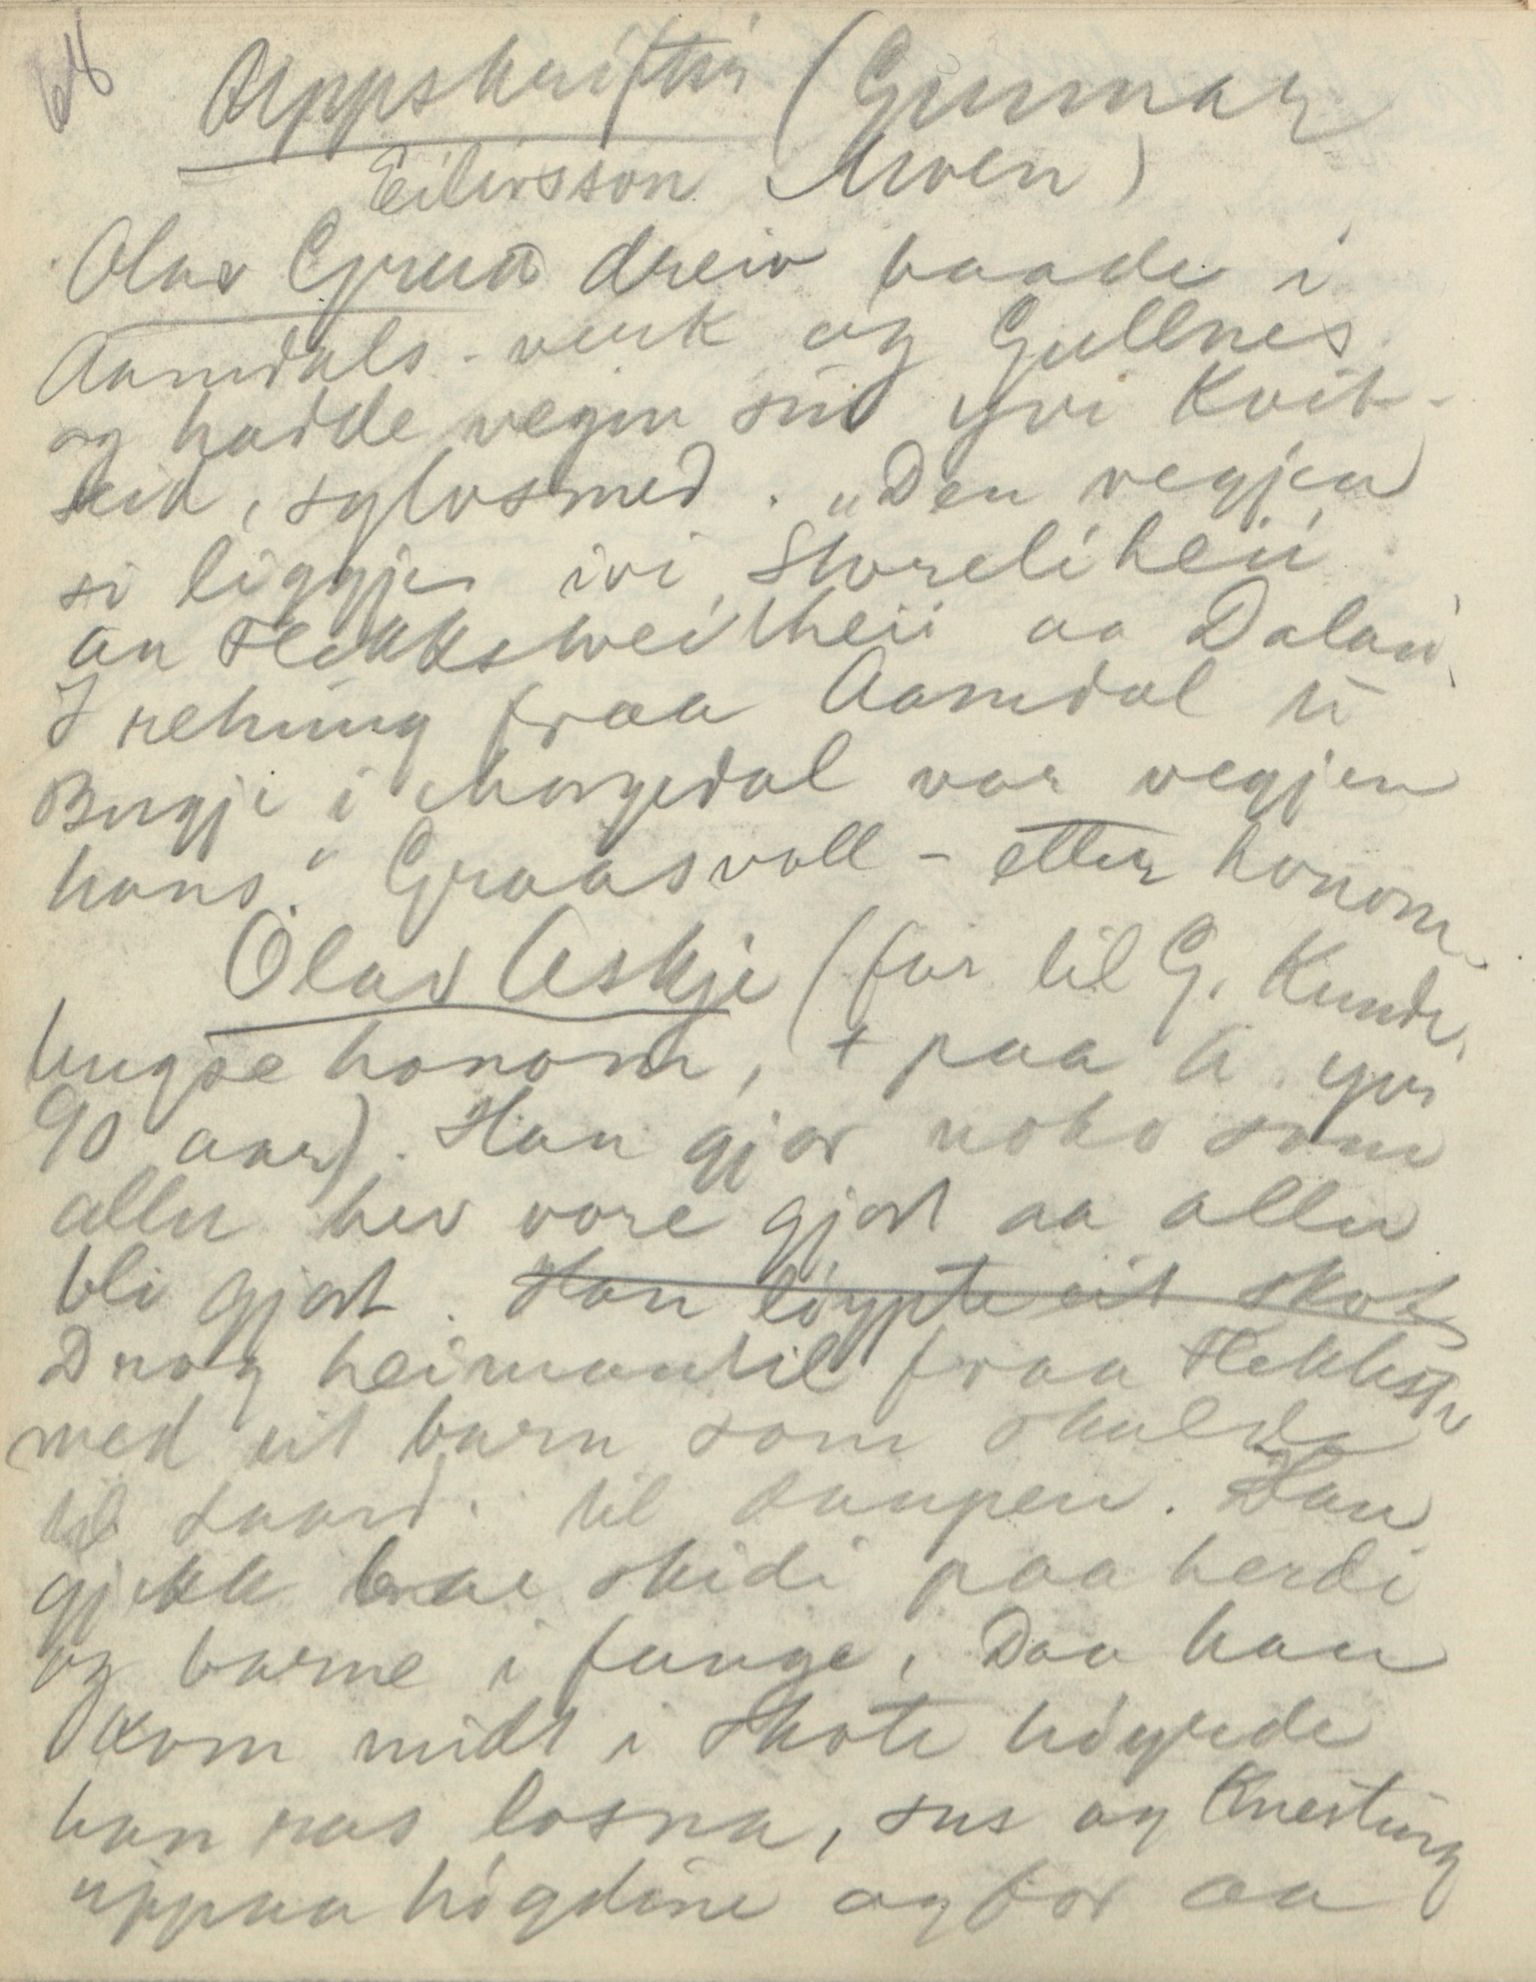 64
Uppskrifter (Gunnar
Eilivsson Kvoen)
Olav Gruaa dreiv baade i
Aamdals-verk og Gullnes
og hadde vegin sin yvi Kvit-
seid, sylvsmed. "Den vegjen
si liggje ivi Storeliheii
an aa Dalan
I retning fraa Aamdal ti
Bugji i Morgedal var vegjen
hans." Graasvoll - etter honom.
Olav Askje (far til G. Kunde
hugse honom, + paa A. yvi
90 aar). Han gjor noko som
aller hev vore gjort aa aller
bli gjort. Han löypte eit skot
Drog heimantil fraa
med eit barn som skulde
til daapen. Han
gjekk skidi paa herdi
og barne i fange. Daa han
kom midt i skote höyrede
han ras losna, sus og knesting
uppaa högdine og for aa